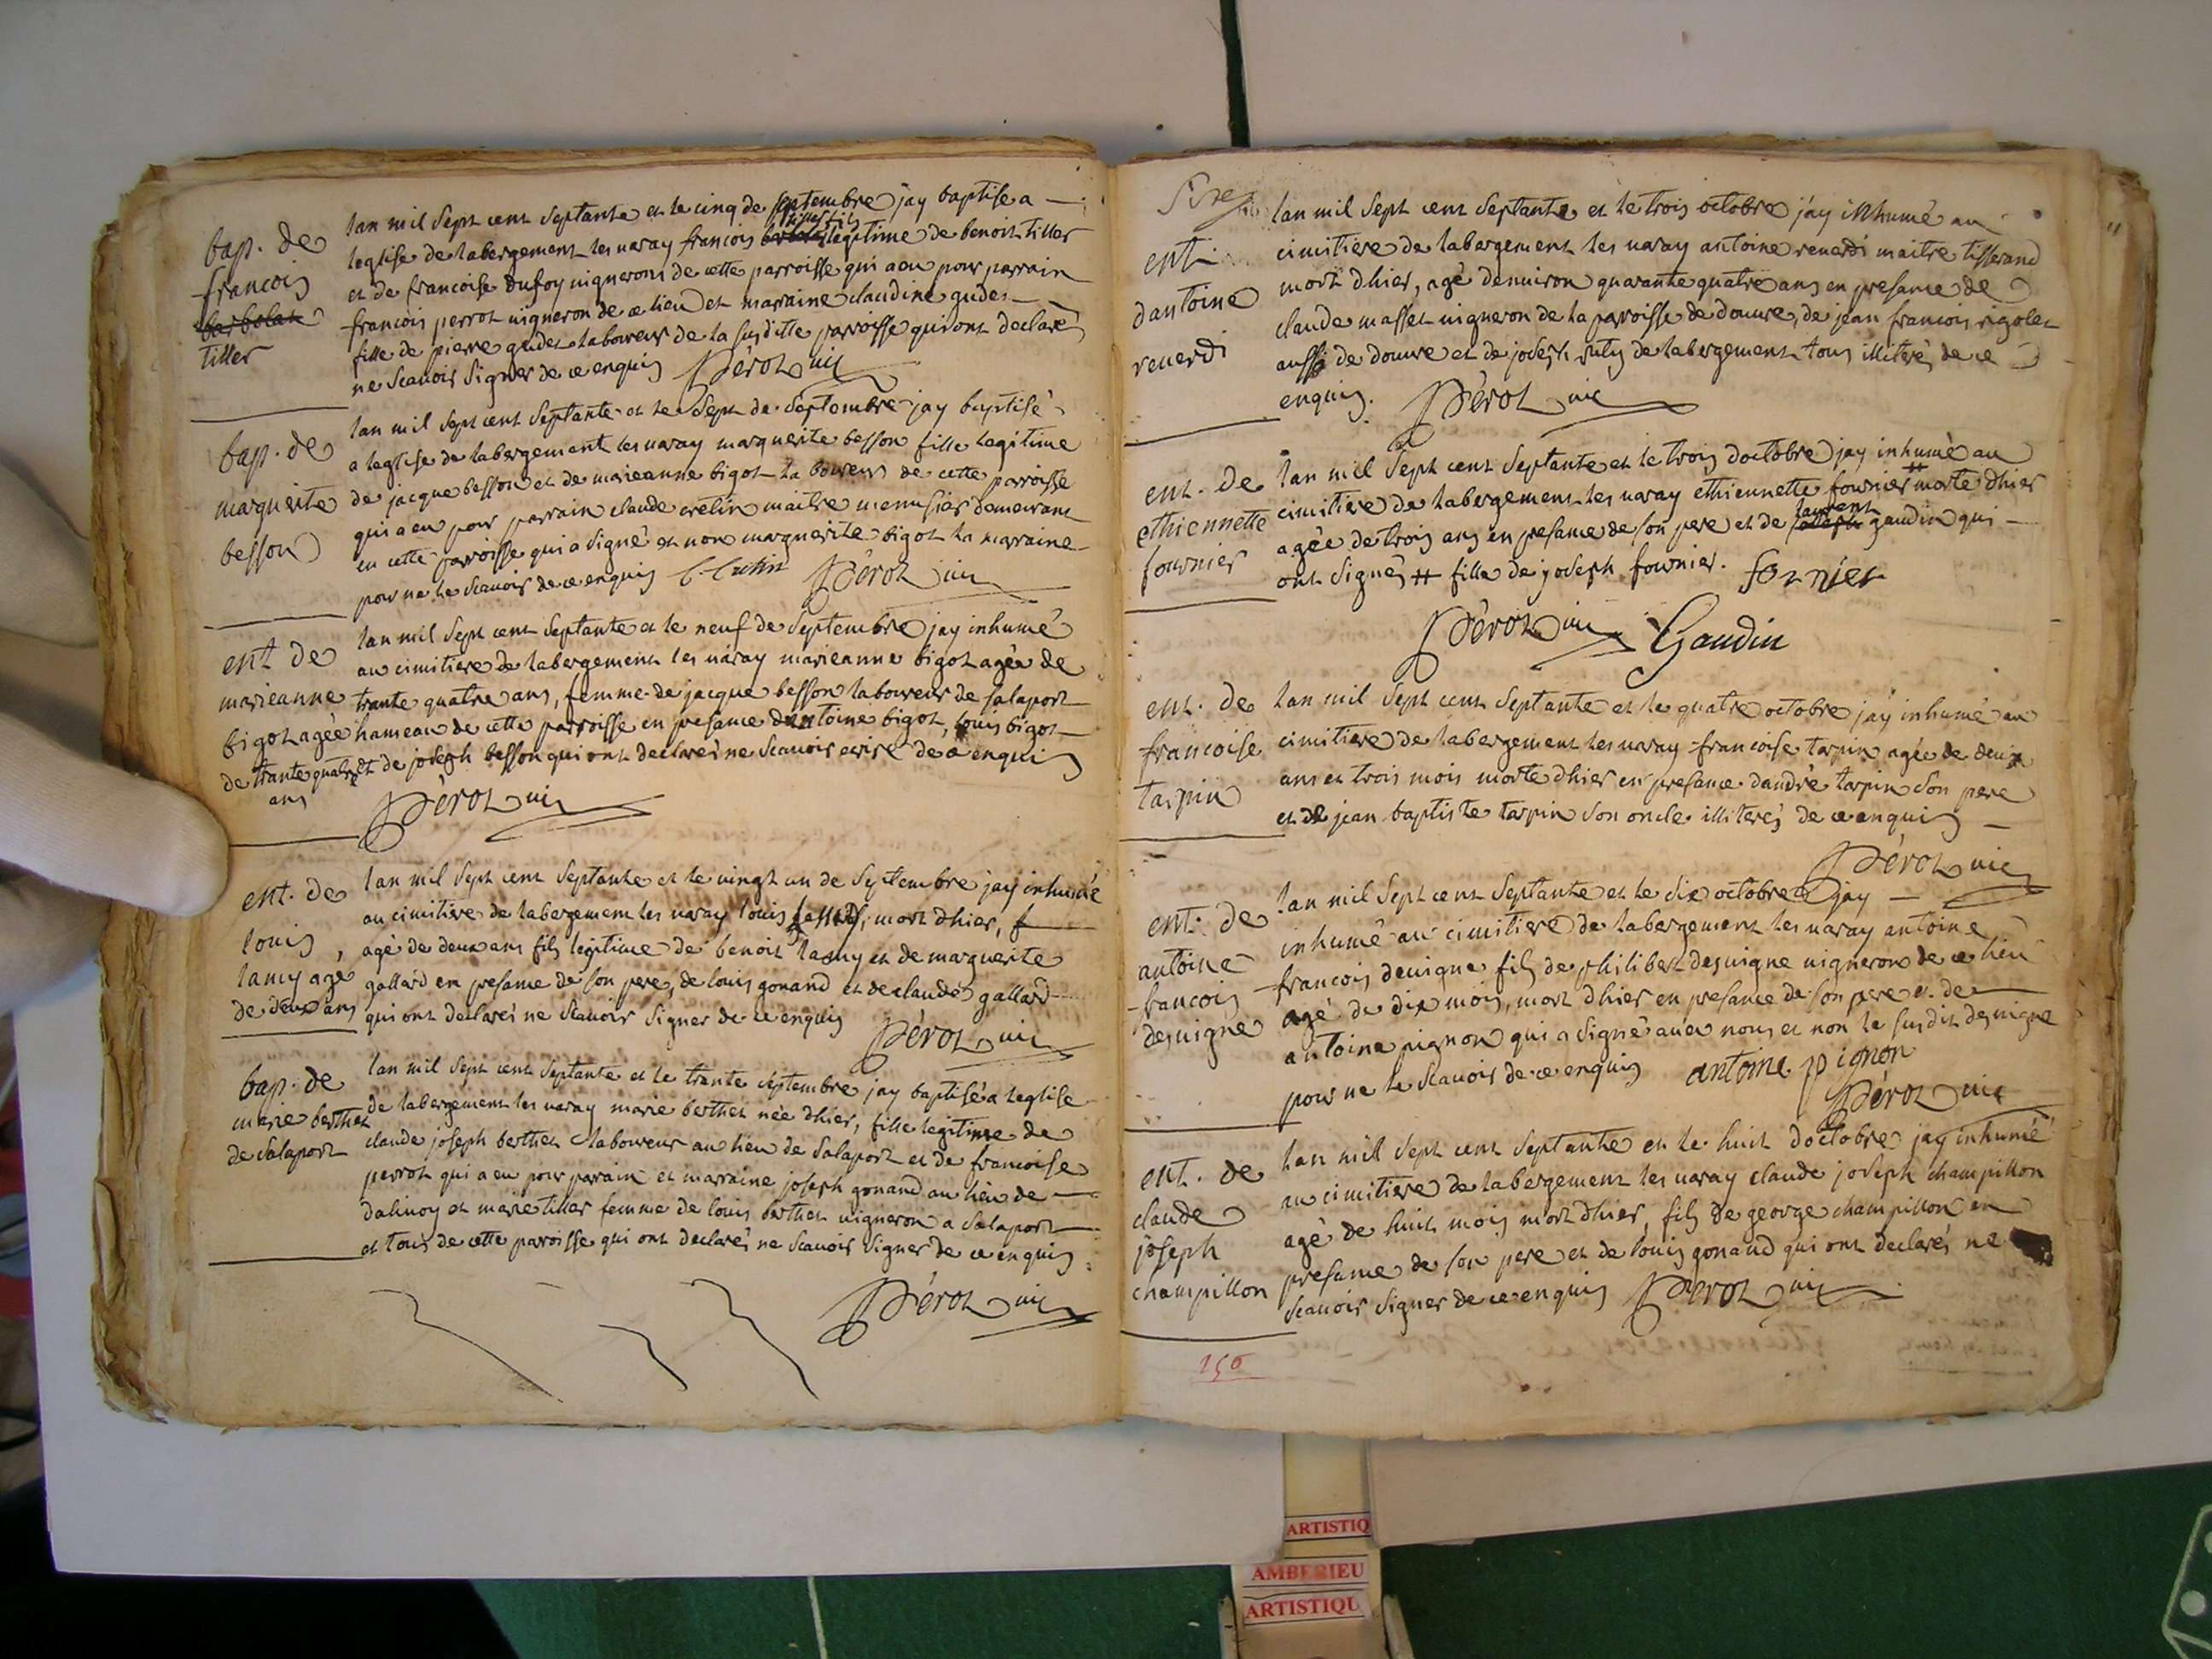 bap. de
francois
barbolat
tiller
lan mil sept cent septante et le cinq de septembre jay baptisé a
tiller fils
leglise de labergement les varay francois legitime de benoit tiller
et de francoise dufoy vignerons de cette parroisse qui a eu pour parrain
francois perrot vigneron de ce lieu et marraine claudine gudet
fille de pierre gudet laboureur de la susditte parroisse qui ont declaré
ne scavoir signer de ce enquis Pérot vic
bap. de
marguerite
besson
lan mil sept cent septante et le sept de septembre jay baptisé
a leglise de labergement les varay marguerite besson fille legitime
de jacque besson et de marieanne bigot laboureurs de cette parroisse
qui a eu pour parrain claude cretin maitre menusier demeurant
en cette parroisse qui a signé et non marguerite bigot la marraine
pour ne le scavoir de ce enquis C. Cretin Pérot vic
ent de
marieanne
bigot agée
de trante quatre
ans
lan mil sept cent septante et le neuf de septembre jay inhumé
au cimitiere de labergement les varay marieanne bigot agée de
trante quatre ans, femme de jacque besson laboureur de salaport
hameau de cette parroisse en presance dantoine bigot, louis bigot
et de joseph besson qui ont declarés ne scavoir ecrire de ce enquis
Pérot vic
ent. de
louis
lamy agé
de deux ans
lan mil sept cent septante et le vingt un de septembre jay inhumé
au cimitiere de labergement les varay louis mort dhier,
agé de deux ans fils legitime de benoit lamy et de marguerite
gallard en presance de son pere, de louis gonand et de claude gallard
qui ont declarés ne scavoir signer de ce enquis
Pérot vic
bap. de
marie berthet
de salaport
lan mil sept cent septante et le trante septembre jay baptisé a leglise
de labergement les varay marie berthet née dhier, fille legitime de
claude joseph berthet laboureur au lieu de salaport et de francoise
perrot qui a eu pour parain et marraine joseph gonand au lieu de
dalivoy et marie tiller femme de louis berthet vigneron a salaport
et tous de cette parroisse qui ont declarés ne scavoir signer de ce enquis
Pérot vic
ent
dantoine
reverdi
lan mil sept cent septante et le trois octobre jay inhumé au
cimitiere de labergement les varay antoine reverdi maitre tisserand
mort dhier, agé denviron quarante quatre ans en presance de
claude masset vigneron de la parroisse de douvre, de jean francois rigolet
aussi de douvre et de joseph suty de labergement tous illiteré de ce
enquis. Pérot vic
ent. de
ethiennette
fournier
lan mil sept cent septante et le trois doctobre jay inhumé au
cimitiere de labergement les varay ethiennette fournier # morte dhier
laurent
agée de trois ans en presance de son pere et de gaudin qui
ont signés # fille de joseph fournier. fornier
Pérot vic Gaudin
ent. de
francoise
tarpin
lan mil sept cent septante et le quatre octobre jay inhumé au
cimitiere de labergement les varay francoise tarpin agée de deux
ans et trois mois morte dhier en presance dandré tarpin son pere
et de jean baptiste tarpin son oncle illiterés de ce enquis
Pérot vic
ent. de
antoine
francois
desvigne
lan mil sept cent septante et le six octobre jay
inhumé au cimitiere de labergement les varay antoine
francois devigne fils de philibert desvigne vigneron de ce lieu
agé de dix mois, mort dhier en presance de son pere et de
antoine pignon qui a signé avec nous et non le susdit desvigne
pour ne le scavoir de ce enquis antoine pignon
Pérot vic
ent. de
claude
joseph
champillon
lan mil sept cent septante et le huit doctobre jay inhumé
au cimitiere de labergement les varay claude joseph champillon
agé de huit mois mort dhier, fils de george champillon en
presance de son pere et de louis gonand qui ont declarés ne
scavoir signer de ce enquis Pérot vic
150
ARTISTIQ
AMBERIEU
ARTISTIQU